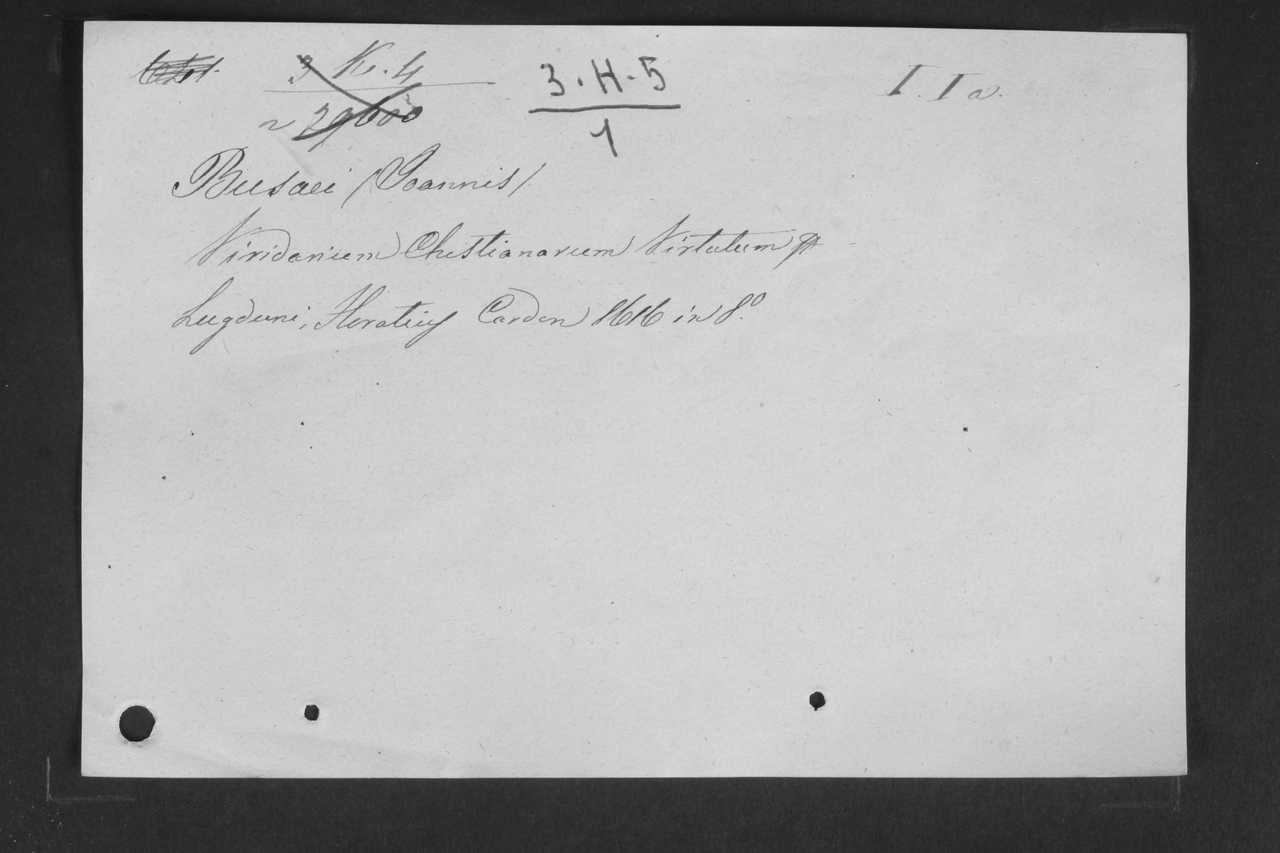 3 K. 4
3·H·5
I. I a.
29600
1
Busaei (Joannis)
Viridarium Christianarum Virtutum
Lugduni, Horatius Cardon 1616 in 8.º